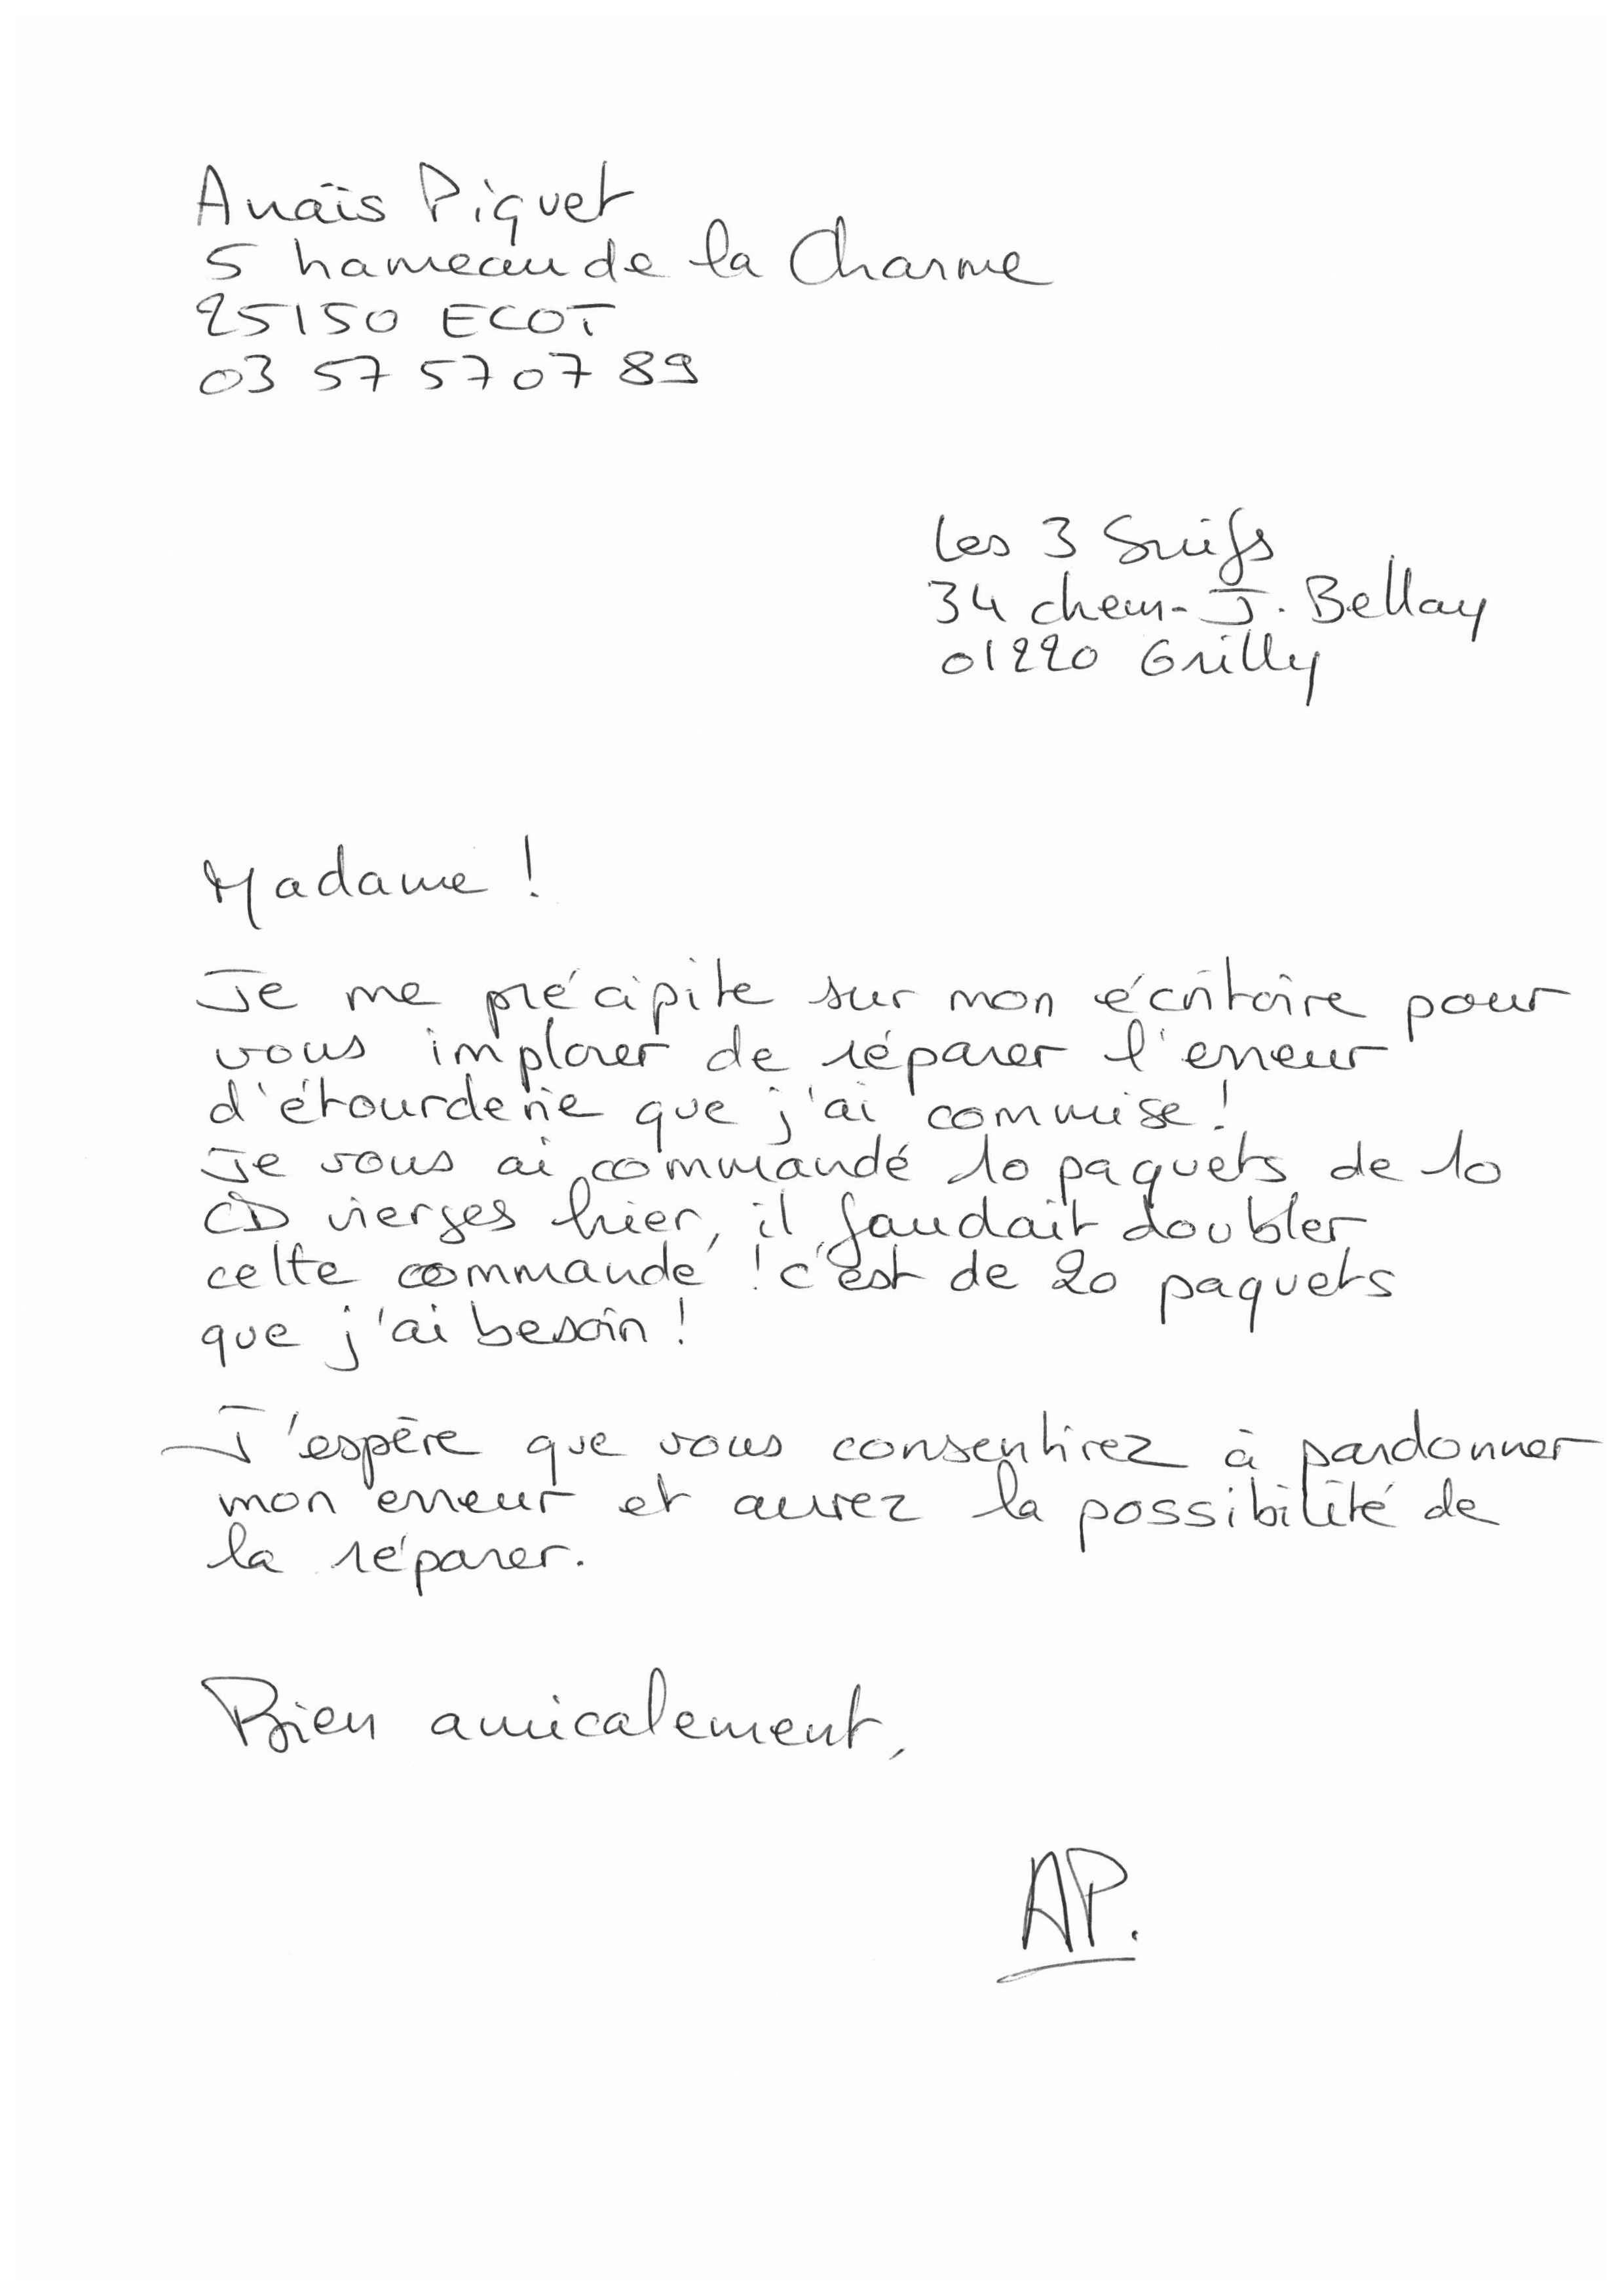 Anaïs Piquet
5 hameau de la Charme
25150 ECOT
03 57 57 07 89
Les 3 Suifs
34 chem. J. Bellay
01220 Grilly
Madame !
Je me précipite sur mon écritoire pour
vous implorer de réparer l'erreur
d'étourderie que j'ai commise !
Je vous ai commandé 10 paquets de 10
CD vierges hier, il faudait doubler
cette commande ! c'est de 20 paquets
que j'ai besoin !
J'espère que vous consentirez à pardonner
mon erreur et aurez la possibilité de
la réparer.
Bien amicalement,
AP.